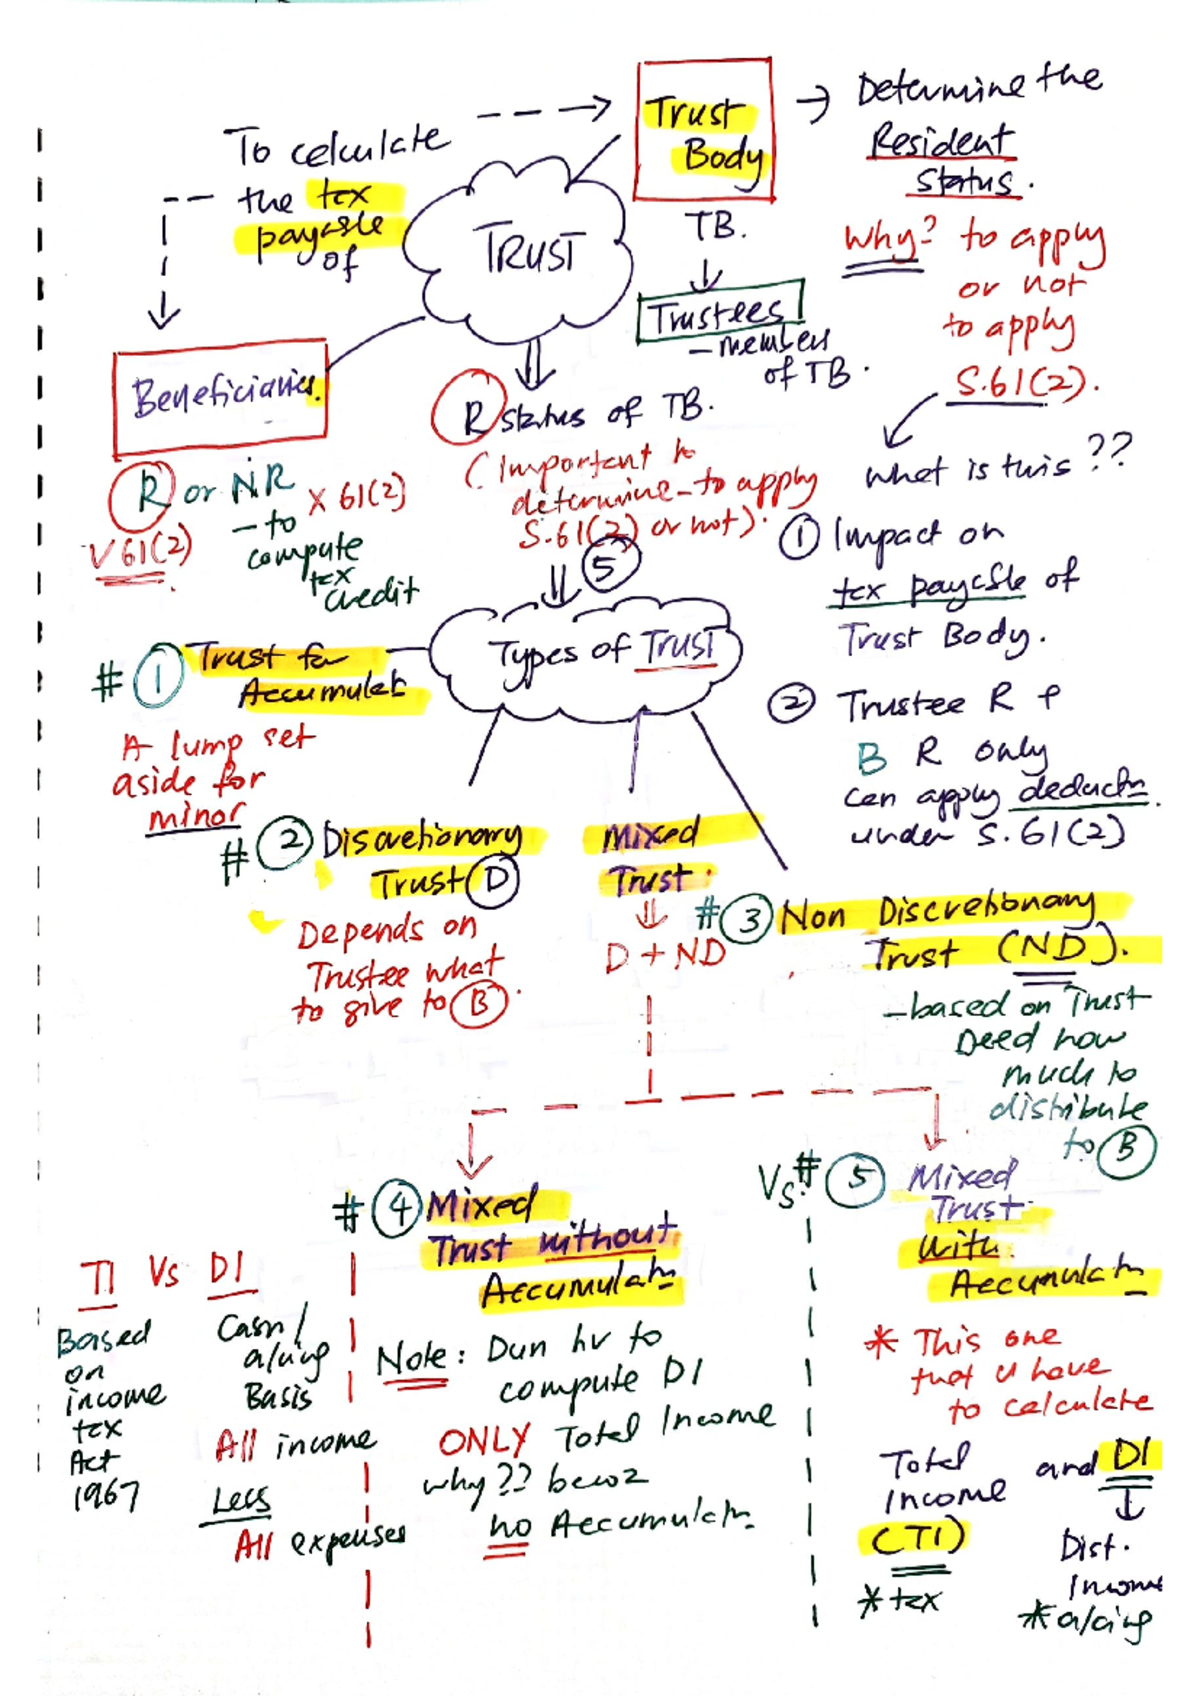 To calculate
the tax
payable
of
Trust
Body
TB.
Trustees
- members
of TB.
Determine the
Resident
Status.
Why? to apply
or not
to apply
S.61(2).
What is this??
① Impact on
tax payable of
Trust Body.
② Trustee R &
B R only
can apply deductn
under S.61(2)
TRUST
Beneficiaries.
R or NR
V 61(2)
X 61(2)
- to
compute
tax
credit
R status of TB.
(Important to
determine - to apply
S.61(2) or not).
⑤
Types of TRUST
# ① Trust for
Accumulat
A lump set
aside for
minor
# ② Discretionary
Trust (D)
Depends on
Trustee what
to give to (B).
Mixed
Trust.
D + ND
# ③ Non Discretionary
Trust (ND).
- based on Trust
Deed how
much to
distribute
to (B)
# ④ Mixed
Trust without
Accumulatn
Note: Dun hv to
compute DI
ONLY Total Income
why?? becoz
no Accumulatn
Vs. # ⑤ Mixed
Trust
with
Accumulatn
* This one
that u have
to calculate
Total
Income
(TI)
* tax
and DI
Dist.
Income
* a/cing
TI Vs DI
Based
on
income
tax
Act
1967
Cash /
a/cing
Basis
All income
Less
All expenses